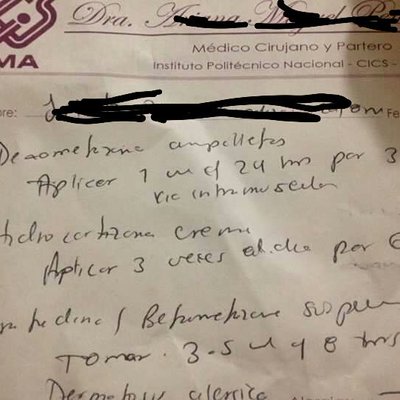 Dra.
Médico Cirujano y Partero
MA
Instituto Politécnico Nacional - CICS -
bre: Fe
Dexametasona ampolletas
Aplicar 1 c/ 24 hrs por 3
via intramuscular
hidrocortizona crema
Aplicar 3 veces al dia por 6
/ Betametasona susp
Tomar. 3.5 8 hrs
alergica